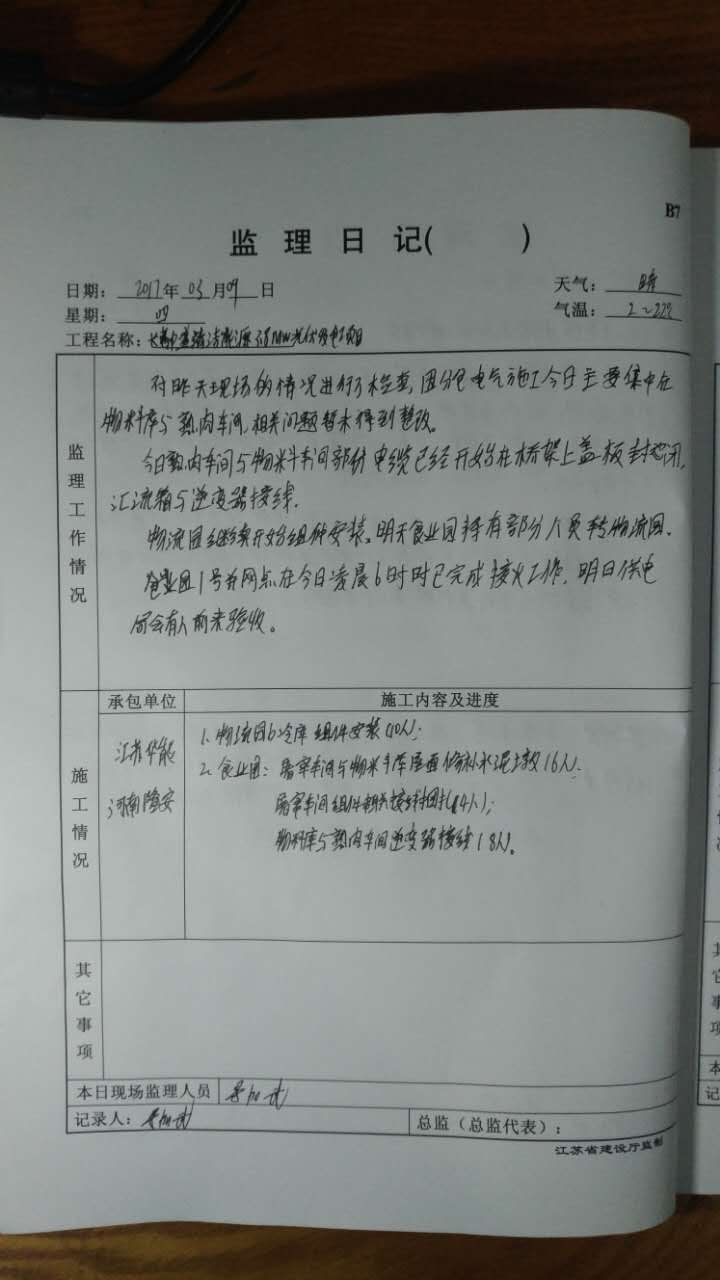 B7
监 理 日 记(          )
日期: 2017年 03 月09 日
天气: 晴
星期: 四
气温: 2~22℃
工程名称: 清洁能源 MW光伏发电项目
监理工作情况
对昨天现场的情况进行了检查,因分包电气施工今日主要集中在
物料库与熟肉车间,相关问题暂未得到整改。
今日熟肉车间与物料车间部份电缆已经开始在桥架上盖板封闭,
汇流箱与逆变器接线.
物流园继续开始组件安装。明天食业园将有部分人员转物流园.
食业园1号并网点在今日凌晨6时时已完成接火工作,明日供电
局会有人前来验收。
承包单位
施工内容及进度
施工情况
江苏华能
河南隆安
1.物流园6冷库组件安装(10人);
2.食业园: 屠宰车间与物料库屋面修补水泥墩16人.
屠宰车间组件接线捆扎(4人);
物料库与熟肉车间逆变器接线(8人)。
其它事项
本日现场监理人员
记录人:
总监(总监代表):
江苏省建设厅监制